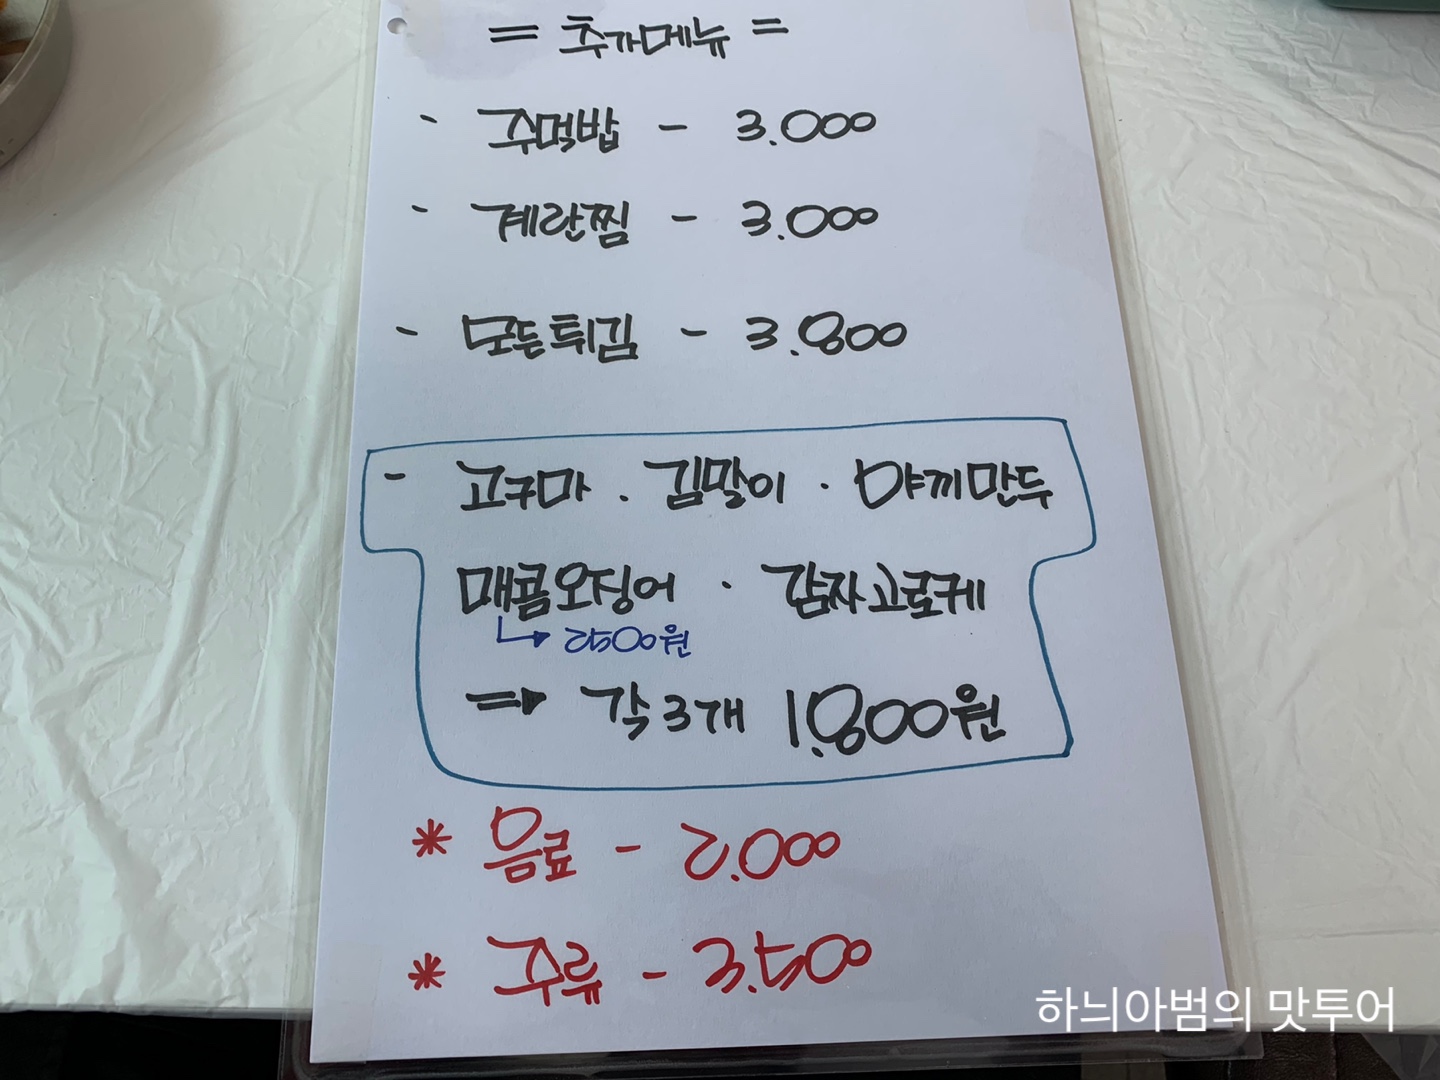 = 추가메뉴 =
- 주먹밥 - 3.000
- 계란찜 - 3.000
- 모듬튀김 - 3.800
- 고구마 . 김말이 · 야끼만두
매콤오징어 · 감자고로케
↳ 2500원
⇒ 각 3개 1.800원
* 음료 - 2.000
* 주류 - 3.500
하늬아범의 맛투어